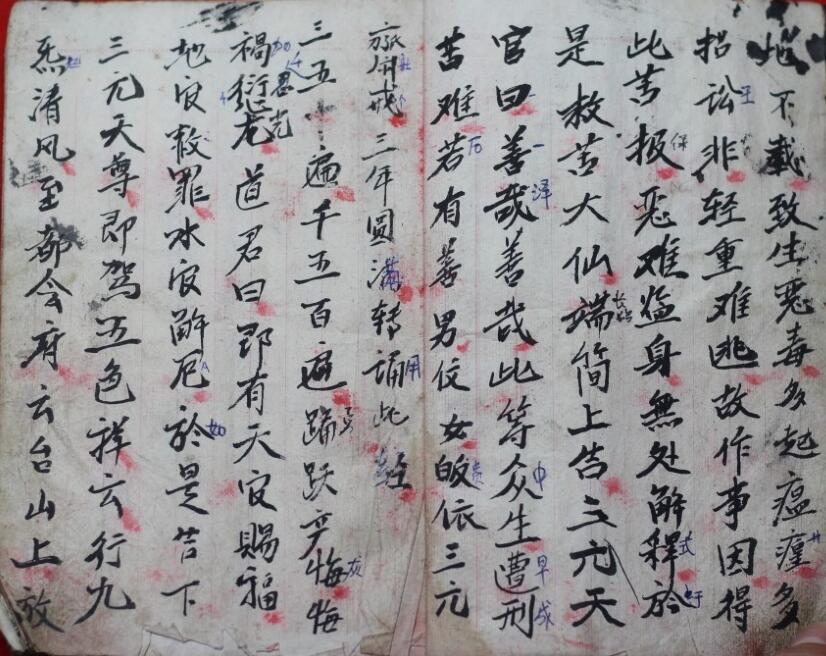 地不载致生恶毒多起瘟𤸁多
招讼非轻重难逃故作事因得
此苦报恶难益身無处解释於
是救苦大仙端简上告三元天
官曰善哉善哉此等众生遭刑
苦难若有善男仗女皈依三元
戒三年圆满转诵此经
三五遍千五百遍踊跃 悔悔
祸衍 老道君曰即有天官賜福
地官赦罪水官解厄於是告下
三元天尊即駕五色祥云行九
炁清风至都会府云台山上放